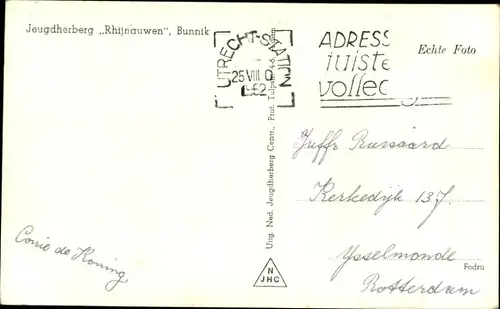 Jeugdherberg „Rhijnauwen", Bunnik
UTRECHT-STATION
25 VIII 0
1952
ADRES
juiste
volled
Echte Foto
Uitg. Ned. Jeugdherberg Centr., Prof. Tulpstr. 4-6,
Juffr Russaard
Kerkedijk 137
Ysselmonde
Rotterdam
Fodru
Corrie de Koning
N
JHC